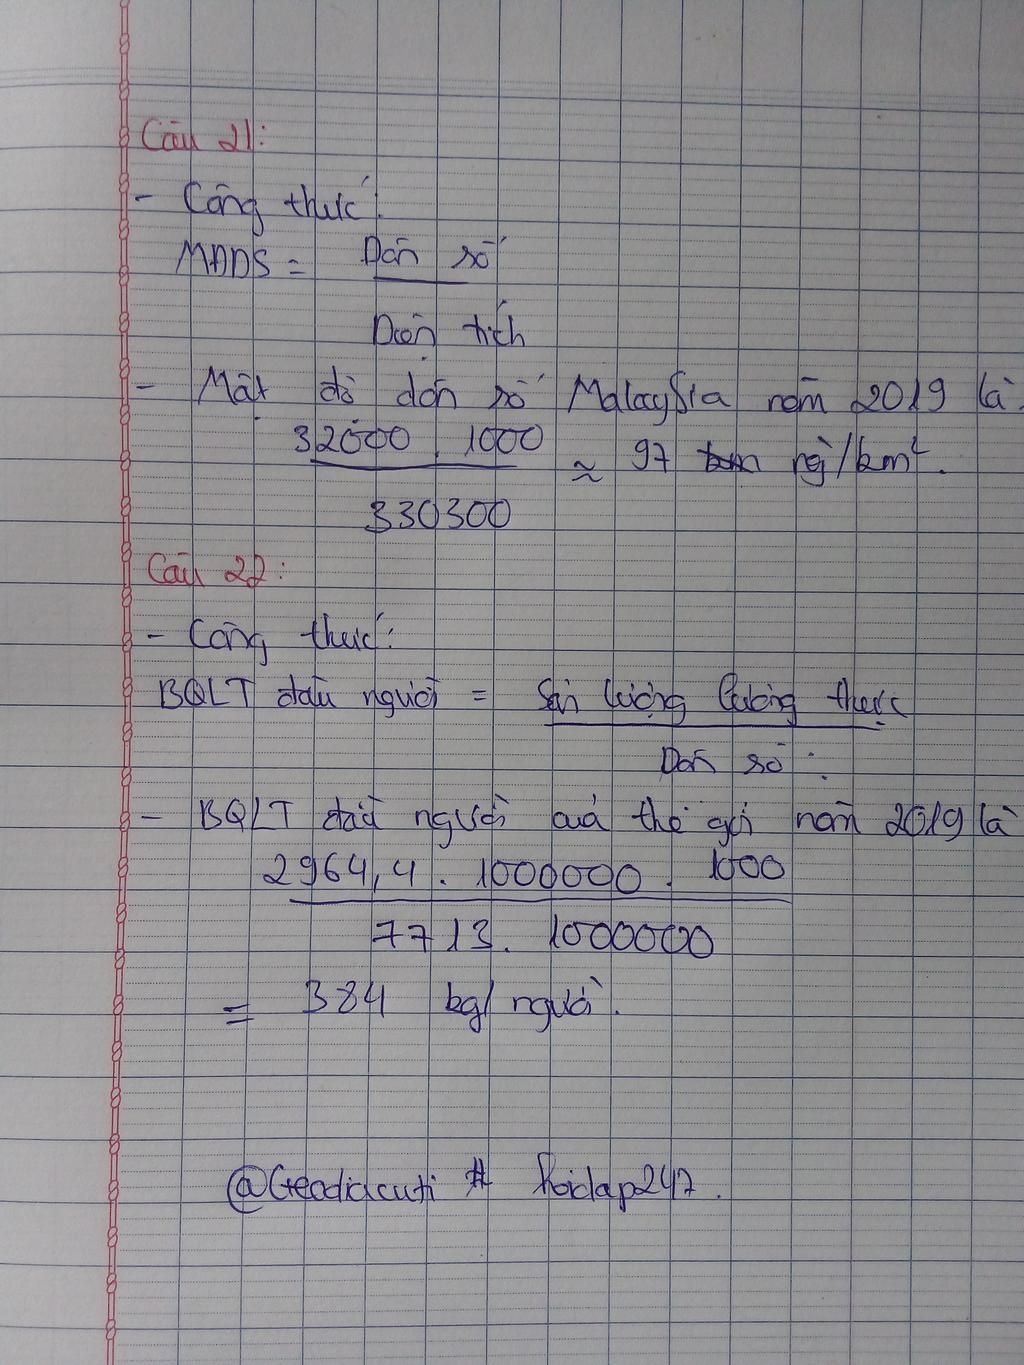 Câu 21:
- Công thức:
MĐDS = Dân số
Diện tích
- Mật độ dân số Malaysia năm 2019 là:
32000 . 1000
≈ 97 ng/km²
330300
Câu 22:
- Công thức:
BQLT đầu người = Sản lượng lương thực
Dân số
- BQLT đầu người của thế giới năm 2019 là
2964,4 . 1000000 . 1000
7713. 1000000
= 384 kg/ người.
@Geodiacuti # hoidap247.